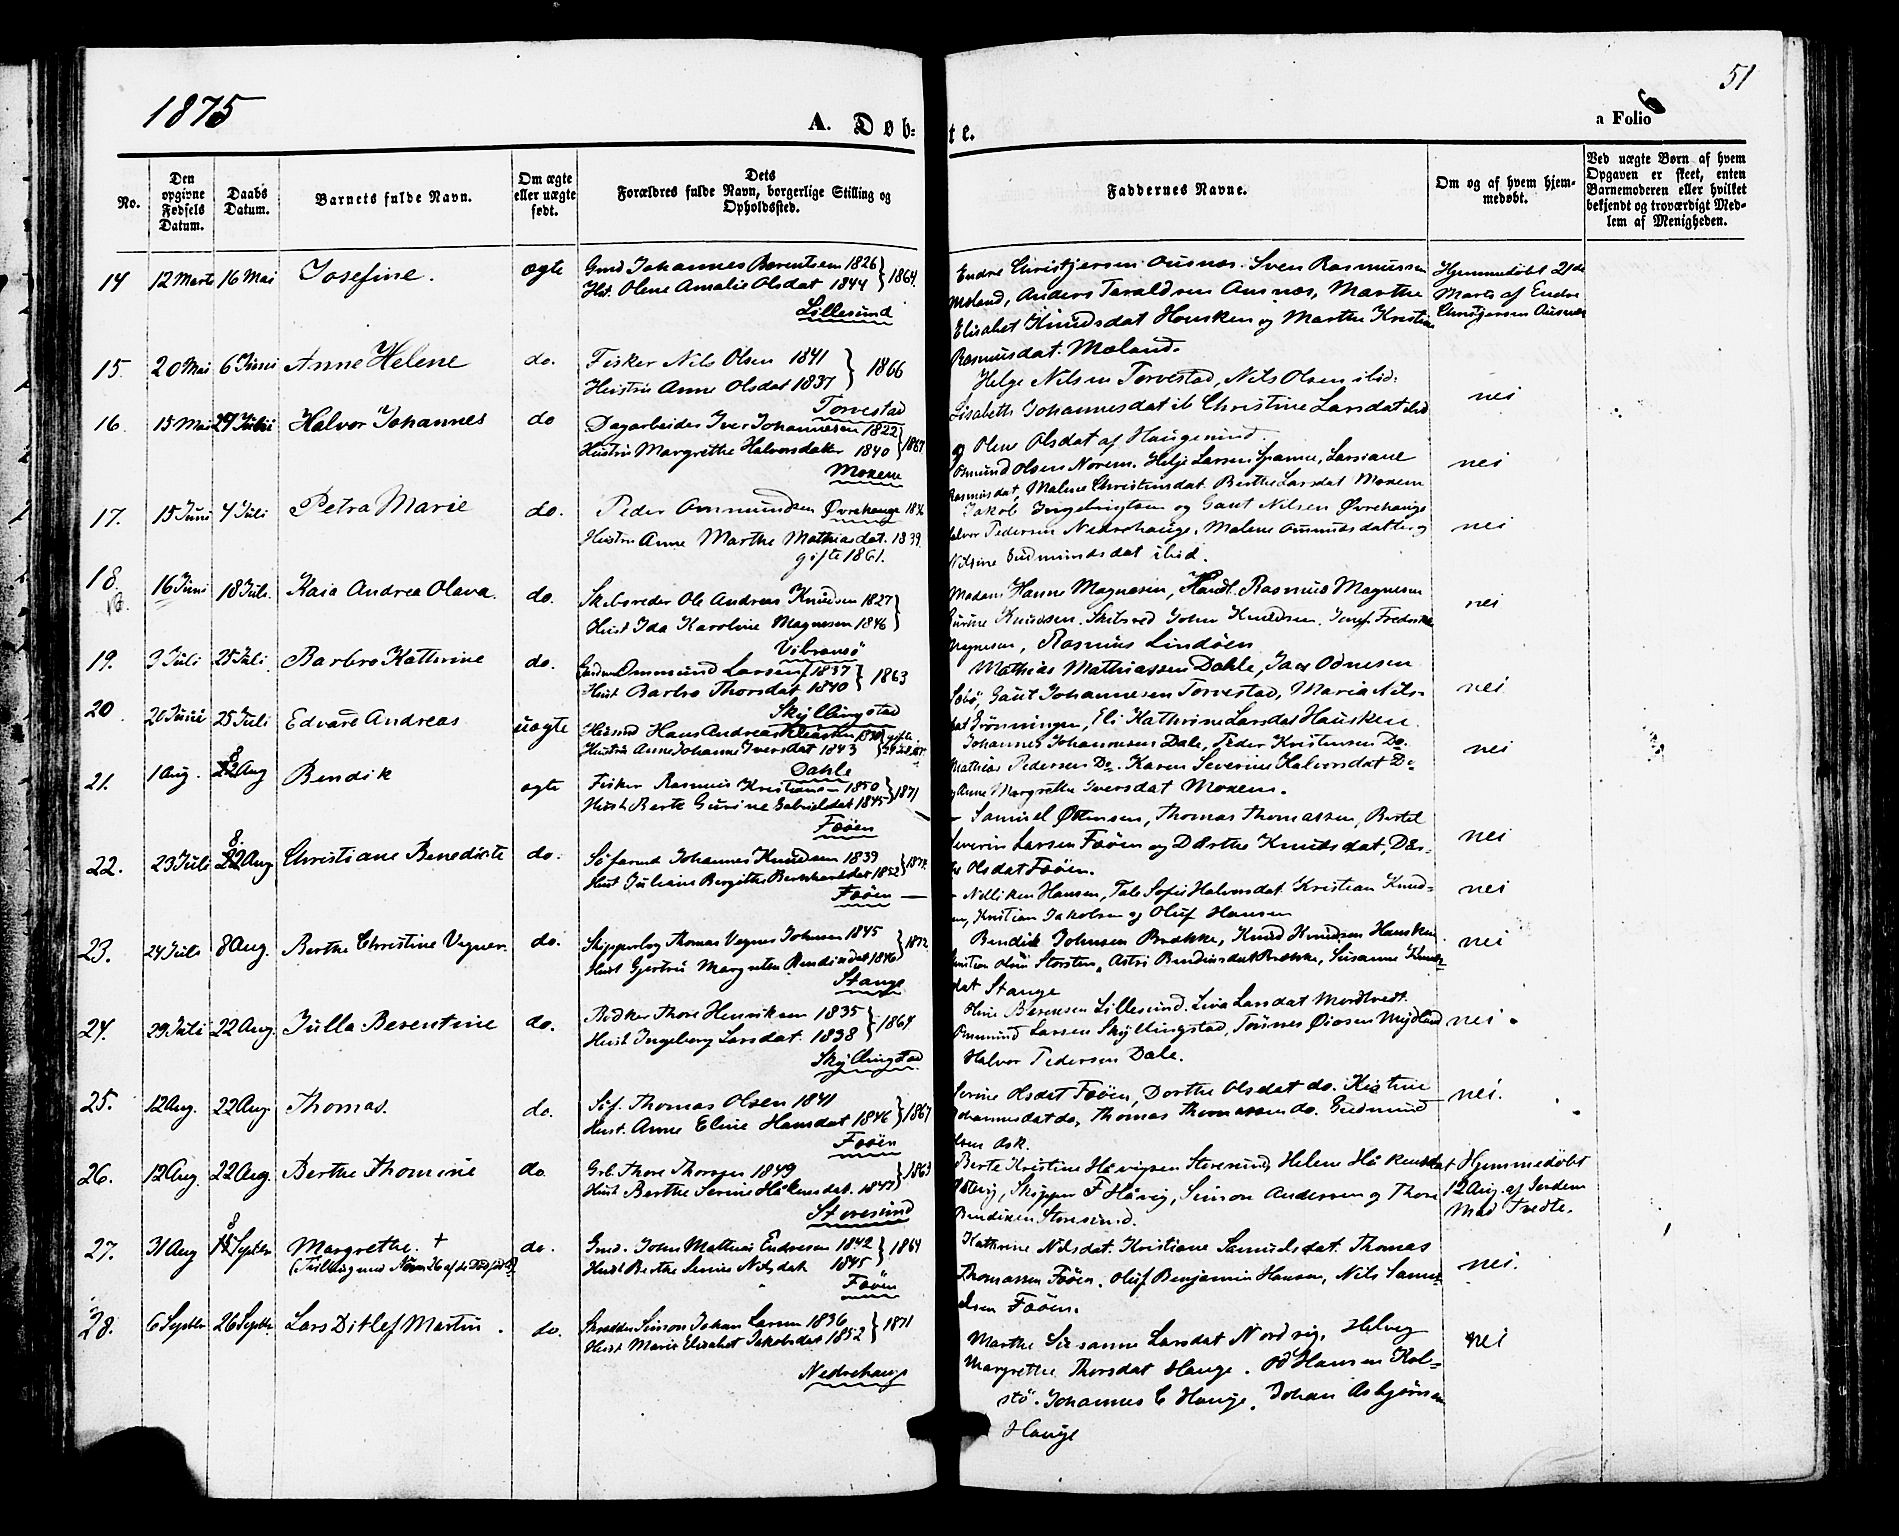 1875
A. Døbte.
a Folio 6
51
No.
Den opgivne Fødsels Datum.
Daabs Datum.
Barnets fulde Navn.
Om ægte eller uægte født.
Dets Forældres fulde Navn, borgerlige Stilling og Opholdssted.
Faddernes Navne.
Om og af hvem hjemmedøbt.
Ved uægte Børn af hvem Opgaven er skeet, enten Barnemoderen eller hvilket bekjendt og troværdigt Medlem af Menigheden.
14 12 Marts 16 Mai Josefine. ægte Gmd Johannes Berentsen 1826 } 1864.
Hst. Olene Amalie Olsdat 1844
Lillesund
Endre Christjersen Ausnæs. Sven Rasmussen
Mæland, Anders Taraldsen Ausnæs, Marthe
Elisabet Knudsdat Housken og Marthe Kristine
Rasmusdat. Mæland.
Hjemmedøbt 21de
Marts af Endre
Christjersen Ausnæs
15. 20 Mai 6 Juni Anne Helene do. Fisker Nils Olsen 1841 } 1866
Hustru Anne Olsdat 1837
Torvestad
Helge Nilsen Torvestad, Nils Olsen ibid.
Lisabeth Johannesdat ib Christine Larsdat ibid
og Olene Olsdat af Haugesund.
nei
16. 15 Mai 27 Juni Halvor Johannes do Dagarbeider Iver Johannesen 1822 } 1867
Hustru Margrethe Halvorsdatter 1840
Moxene
Osmund Olsen Norem. Helje Larsen Spanne, Larsiane
Rasmusdat, Malene Christensdat. Berthe Larsdat Moxene
nei
17. 15 Juni 4 Juli Petra Marie do. Peder Ommundsen Øvrehauge 1836
Hustru Anne Marthe Mathiasdat. 1839.
gifte 1861.
Jakob Ingebrigtsen og Gaut Nilsen Øvrehauge
Halvor Pedersen Nedrehauge, Malene Omundsdatter og
Nilsine Gudmundsdat ibid.
nei
18. 16 Juni 18 Juli. Kaia Andrea Olava. do. Skibsreder Ole Andreas Knudsen 1827 }
Hust Ida Karoline Magnesen 1846
Vibransø
Madam Hanne Magnesen, Handl. Rasmus Magnesen
Gurine Knudsen. Skibsred John Knudsen. Jomf. Fredrikke
Magnesen, Rasmus Lindøen
nei
19. 3 Juli 25 Juli. Barbro Kathrine do. Gaardm Ommund Larsen 1837 } 1863
Hust Barbro Thorsdat 1840
Skyllingstad
Mathias Mathiassen Dahle, Jacob Odnesen
Sebø, Gaut Johannesen Torvestad, Maria Nils-
dat Grønningen, Eli Kathrine Larsdat Hausken.
nei
20. 20 Juni 25 Juli Edvard Andreas uægte Husmd Hans Andreas
Hustru Anne Johanne Iversdat 1843
Dahle
Johannes Johannesen Dale, Peder Kristensen Do.
Mathias Pedersen Do. Karen Severine Halvorsdat Do
og Anne Margrethe Iversdat Moxene.
nei
21. 1 Aug. 8 Aug Bendik ægte Fisker Rasmus Kristiansen 1850 } 1871
Hust Berte Gurine Gabrielsdat 1845
Føøen
Samuel Ottensen, Thomas Thomassen, Bertel
Severin Larsen Føøen og Dorthe Knudsdat, Dor-
the Olsdat Føøen.
nei
22. 23 Juli 8 Aug Christiane Benedicte do. Søfarende Johannes Knudsen 1839
Hust Juliane Bergithe Bernhardsdat 1852
Føøen
Nilliken Hansen, Tale Sofie Halvorsdat Kristian Knud-
sen, Kristian Jakobsen og Oluf Hansen
nei
23. 24 Juli 8 Aug. Berthe Christine Vegner. do. Skipperlog Thomas Vegner Johnsen 1845 } 1872
Hust Gjertru Margreten Bendiksdat 1846
Stange
Bendik Johnsen Brekke, Knud Knudsen Hausken
Kristian Olsen Storsten, Astri Bendiksdat Brekke, Susanne Knuds-
dat Stange
nei
24. 29 Juli 22 Aug. Julla Berentine do. Bødker Thore Henriksen 1835 } 1864
Hust Ingeborg Larsdat. 1838
Skyllingstad
Oline Berensen Lillesund. Liva Larsdat Mordtvedt.
Ommund Larsen Skyllingstad, Tønnes Øiesen Mydland
Halvor Pedersen Dale.
nei.
25. 12 Aug. 22 Aug. Thomas. do. Søf. Thomas Olsen 1841 } 1867
Hust. Anne Eline Hansdat 1846
Føøen
Serine Olsdat Føøen, Dorthe Olsdat do. Kistine
Johannesdat do, Thomas Thomassen do. Gudmund
Olsen Ask.
nei.
26. 12 Aug. 22 Aug. Berthe Thomine do Grb. Thore Thorsen 1849 } 1869
Hust Berthe Serine Håkensdat. 1847
Storesund
Berte Kristine Håvigsen Storesund, Helene Håkensdat
Håvig, Skipper F Håvig, Simon Andersen og Thore
Bendiksen Storesund.
Hjemmedøbt
12 Aug. af Jordem
Mad Tvedte.
27. 31 Aug 8 Septbr Margrethe. † do. Gmd. John Mathias Endresen 1842 } 1864
(Tvilling med No 26 af de Dødfødte) Hust Berthe Serine Nilsdat 1845
Føøen
Kathrine Nilsdat. Kristiane Samuelsdat. Thomas
Thomassen Føøen. Oluf Benjamin Hansen, Nils Samu-
elsen Føøen.
nei.
28. 6 Septbr 26 Septbr. Lars Ditlef Martin. do. Skrædder Simon Johan Larsen 1836 } 1871
Hust Marie Elisabet Jakobsdat 1852
Nedrehauge
Marthe Susanne Larsdat Nordvig, Helvig
Margrethe Thorsdat Hauge. Od Hansen Kol-
stø. Johannes C Hauge, Johan Asbjørnsen
Hauge
nei